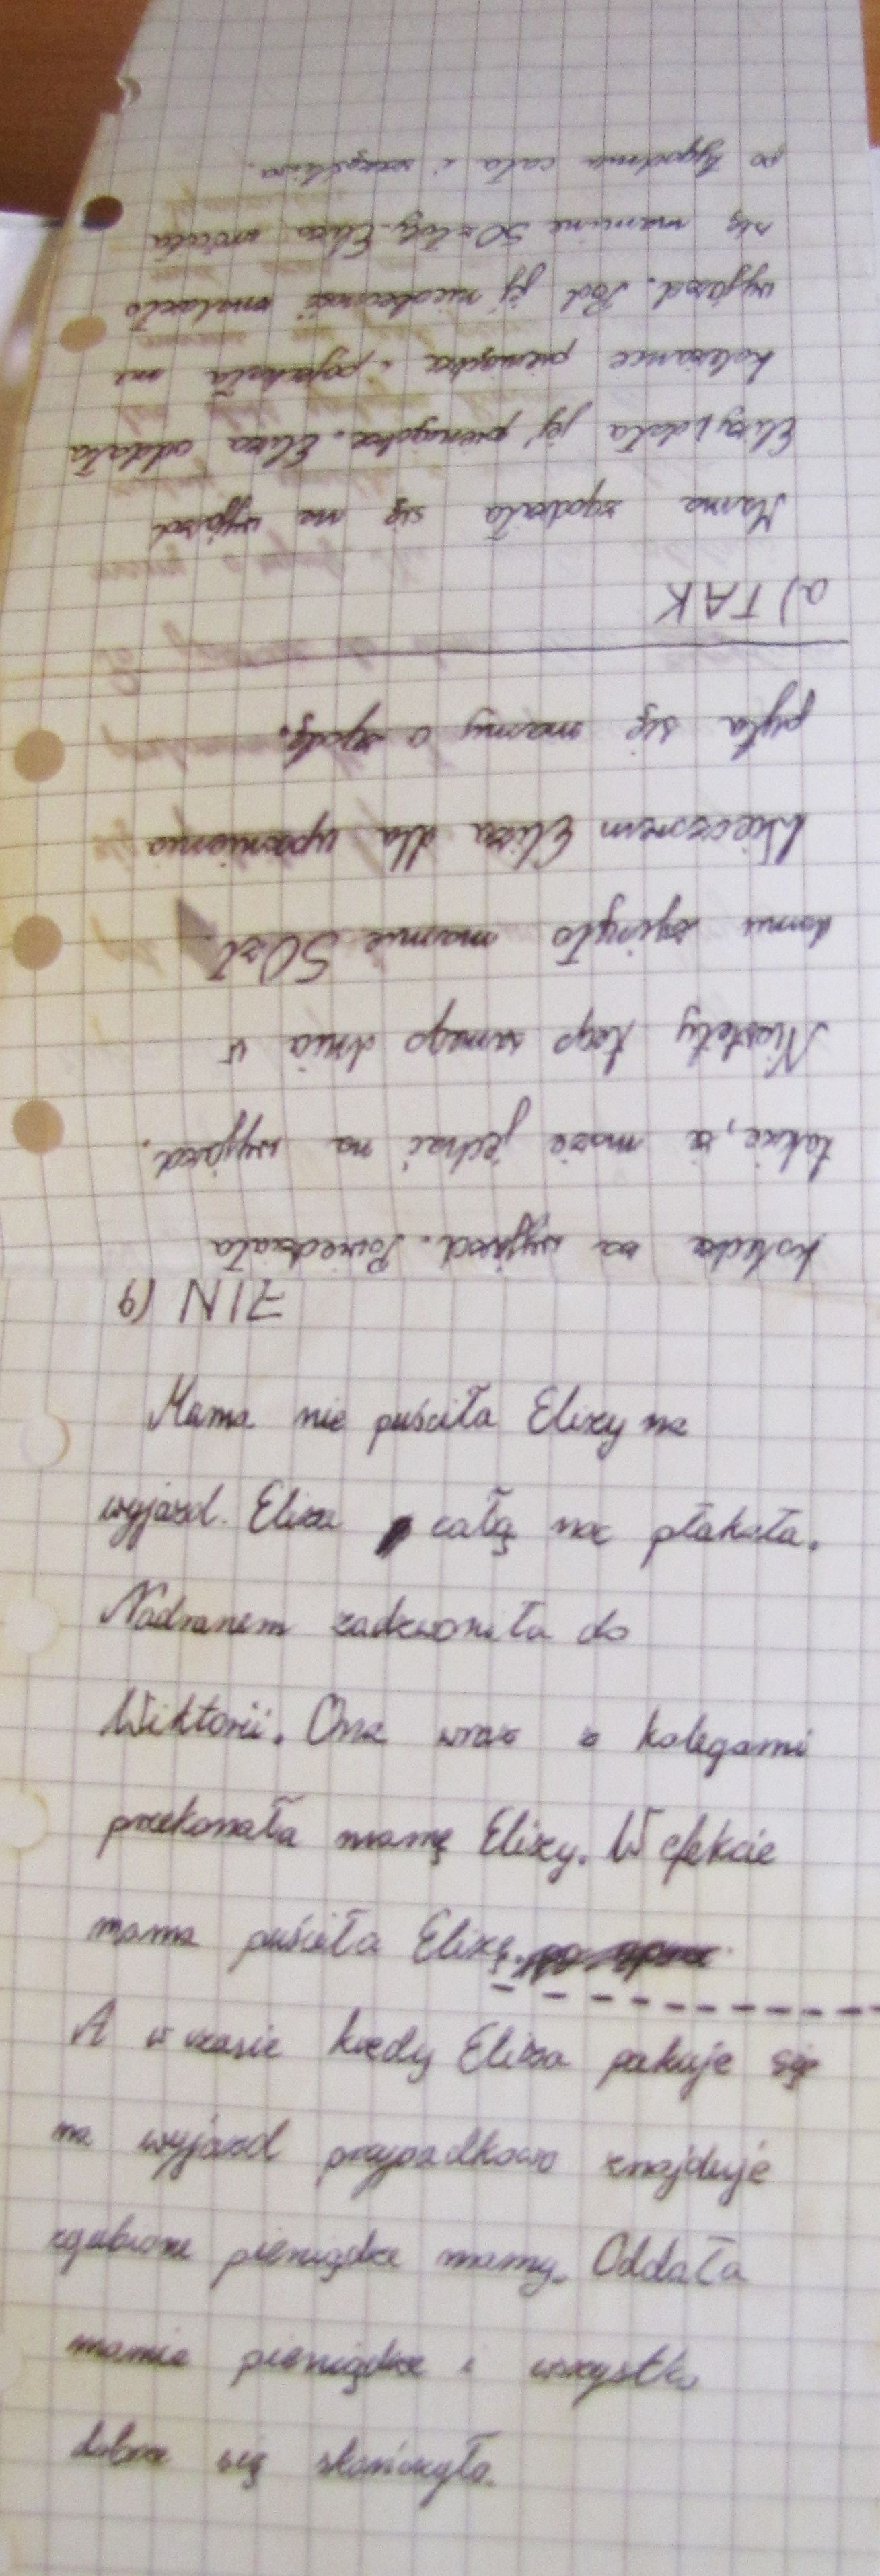 koledze za wyjazd. Powiedziała
także, że może jechać na wyjazd.
Niestety tego samego dnia w
domu zginęło mamie 50zł.
Wieczorem Eliza dla upewnienia
pyta się mamy o zgodę.
a) TAK
Mama zgodziła się na wyjazd
Elizy i dała jej pieniądze. Eliza oddała
koleżance pieniądze i pojechała na
wyjazd. Pod jej nieobecność znalazło
się mamine 50 złoty. Eliza wróciła
po tygodniu cała i szczęśliwa.
b) NIE
Mama nie puściła Elizy na
wyjazd. Eliza całą noc płakała.
Nadranem zadzwoniła do
Wiktorii. Ona wraz z kolegami
przekonała mamę Elizy. W efekcie
mama puściła Elizę.
A w czasie kiedy Eliza pakuje się
na wyjazd przypadkowo znajduje
zgubione pieniądze mamy. Oddała
mamie pieniądze i wszystko
dobrze się skończyło.